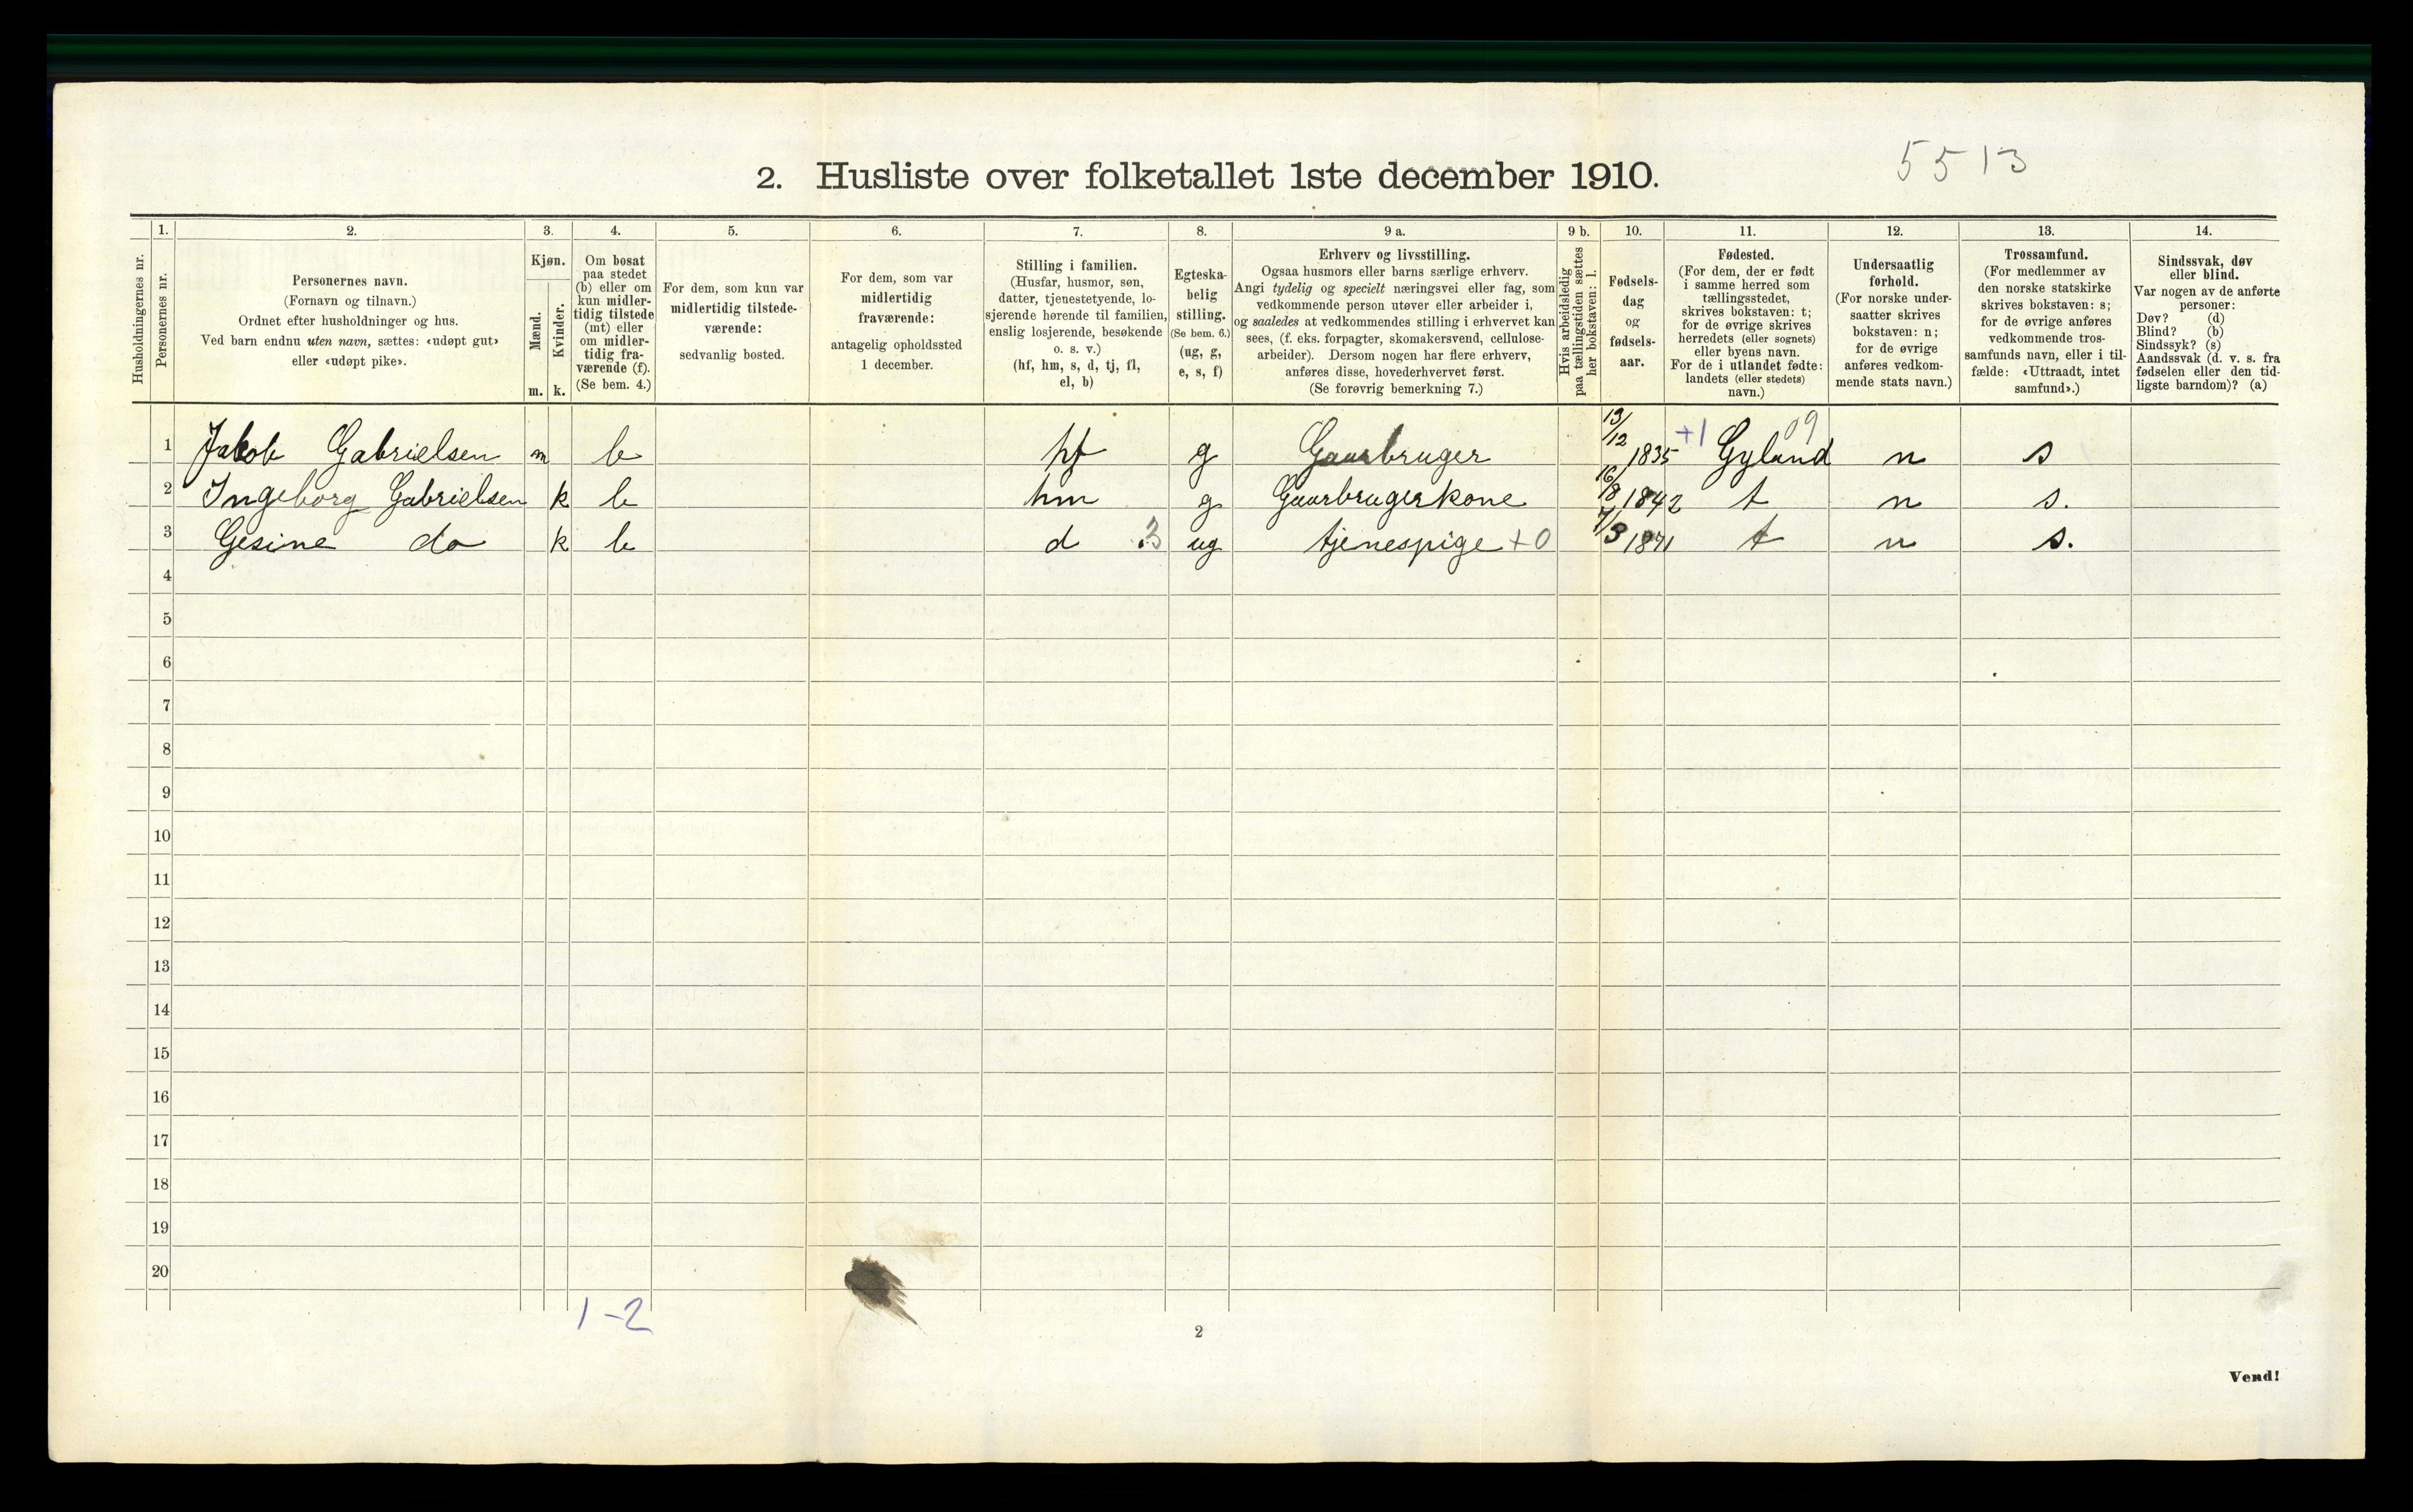 5513
2. Husliste over folketallet 1ste december 1910.
Husholdningernes nr.
1. Personernes nr.
2. Personernes navn.
(Fornavn og tilnavn.)
Ordnet efter husholdninger og hus.
Ved barn endnu uten navn, sættes: «udøpt gut»
eller «udøpt pike».
3. Kjøn.
Mænd. m.
Kvinder. k.
4. Om bosat
paa stedet
(b) eller om
kun midler-
tidig tilstede
(mt) eller
om midler-
tidig fra-
værende (f).
(Se bem. 4.)
5. For dem, som kun var
midlertidig tilstede-
værende:
sedvanlig bosted.
6. For dem, som var
midlertidig
fraværende:
antagelig opholdssted
1 december.
7. Stilling i familien.
(Husfar, husmor, søn,
datter, tjenestetyende, lo-
sjerende hørende til familien,
enslig losjerende, besøkende
o. s. v.)
(hf, hm, s, d, tj, fl,
el, b)
8. Egteska-
belig
stilling.
(Se bem. 6.)
(ug, g,
e, s, f)
9 a. Erhverv og livsstilling.
Ogsaa husmors eller barns særlige erhverv.
Angi tydelig og specielt næringsvei eller fag, som
vedkommende person utøver eller arbeider i,
og saaledes at vedkommendes stilling i erhvervet kan
sees, (f. eks. forpagter, skomakersvend, cellulose-
arbeider). Dersom nogen har flere erhverv,
anføres disse, hovederhvervet først.
(Se forøvrig bemerkning 7.)
9 b. Hvis arbeidsledig
paa tællingstiden sættes
her bokstaven: l.
10. Fødsels-
dag
og
fødsels-
aar.
11. Fødested.
(For dem, der er født
i samme herred som
tællingsstedet,
skrives bokstaven: t;
for de øvrige skrives
herredets (eller sognets)
eller byens navn.
For de i utlandet fødte:
landets (eller stedets)
navn.)
12. Undersaatlig
forhold.
(For norske under-
saatter skrives
bokstaven: n;
for de øvrige
anføres vedkom-
mende stats navn.)
13. Trossamfund.
(For medlemmer av
den norske statskirke
skrives bokstaven: s;
for de øvrige anføres
vedkommende tros-
samfunds navn, eller i til-
fælde: «Uttraadt, intet
samfund».)
14. Sindssvak, døv
eller blind.
Var nogen av de anførte
personer:
Døv? (d)
Blind? (b)
Sindssyk? (s)
Aandssvak (d. v. s. fra
fødselen eller den tid-
ligste barndom)? (a)
1 Jakob Gabrielsen m b hf g Gaarbruger 13/12 1835 +1 Gyland 09 n s
2 Ingeborg Gabrielsen k b hm g Gaarbrugerkone 16/8 1842 t n s.
3 Gesine do k b d .3 ug tjenespige +0 7/3 1871 t n s.
4
5
6
7
8
9
10
11
12
13
14
15
16
17
18
19
20
1-2
2
Vend!